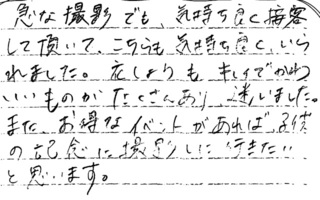 急な撮影でも、気持ち良く接客
して頂いて、こちらも気持ち良く、いら
れました。衣しょうも キレイでかわ
いいものが たくさんあり、迷いました。
また、お得な イベントがあれば、子供
の記念に撮影しに行きたい
と思います。